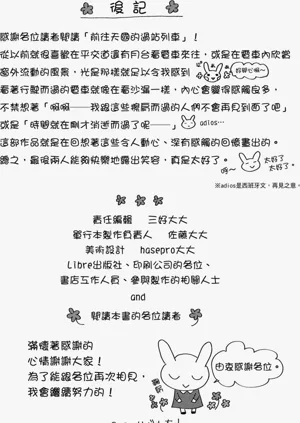 後記
感謝各位讀者閱讀「前往天國的過站列車」！
從以前就很喜歡在平交道還有月台看電車來往，或是在電車內欣賞
窗外流動的風景，光是那樣就足以令我感到
看著行駛而過的電車就像在看沙漏一樣，內心會變得感觸良多，
不禁想著「啊啊——我跟這些擦肩而過的人們不會再見到面了吧」
或是「時間就在剛才消逝而過了呢——」
adios…
這部作品就是在回想著這些令人動心、深有感觸的回憶畫出的。
總之，最後兩人能夠快樂地露出笑容，真是太好了。
呵～
太好了
太好了。
※adios是西班牙文，再見之意。
責任編輯 三好大大
單行本製作負責人 佐藤大大
美術設計 hasepro大大
Libre出版社、印刷公司的各位、
書店工作人員、參與製作的相關人士
and
閱讀本書的各位讀者
滿懷著感謝的
心情謝謝大家！
為了能跟各位再次相見，
我會繼續努力的！
由衷感謝各位。